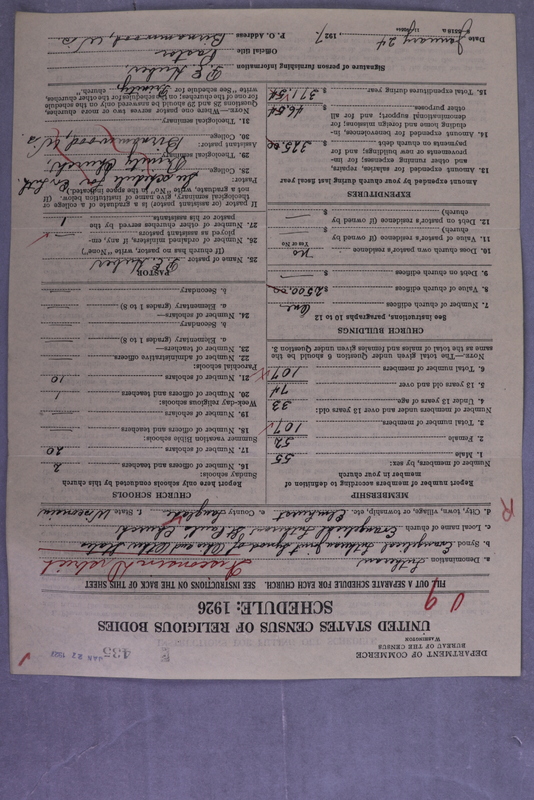 DEPARTMENT OF COMMERCE
BUREAU OF THE CENSUS
WASHINGTON
435
JAN 27 1927
UNITED STATES CENSUS OF RELIGIOUS BODIES
SCHEDULE: 1926
FILL OUT A SEPARATE SCHEDULE FOR EACH CHURCH. SEE INSTRUCTIONS ON THE BACK OF THIS SHEET
a. Denomination Lutheran
Wisconsin District
b. Synod Evangelical Lutheran Joint Synod of Ohio and Other States
c. Local name of church Evangelical Lutheran St. Pauls Church
d. City, town, village, or township, etc. Elmhurst e. County Langlade f. State Wisconsin
MEMBERSHIP
Report number of members according to definition of member in your church
Number of members, by sex:
1. Male 55
2. Female 52
3. Total number of members 107
Number of members under and over 13 years old:
4. Under 13 years of age 33
5. 13 years old and over 74
6. Total number of members 107
NOTE.—The total given under Question 6 should be the same as the total of males and females given under Question 3.
CHURCH BUILDINGS
See instructions, paragraphs 10 to 12
7. Number of church edifices One
8. Value of church edifices $2500.00
9. Debt on church edifices $
10. Does church own pastor's residence no
Yes or No
11. Value of pastor's residence (if owned by church) $
12. Debt on pastor's residence (if owned by church) $
EXPENDITURES
Amount expended by your church during last fiscal year
13. Amount expended for salaries, repairs, and other running expenses; for improvements or new building; and for payments on church debt $325.00
14. Amount expended for benevolences, including home and foreign missions; for denominational support; and for all other purposes $46.54
15. Total expenditures during year $371.54
CHURCH SCHOOLS
Report here only schools conducted by this church
Sunday schools:
16. Number of officers and teachers 2
17. Number of scholars 20
Summer vacation Bible schools:
18. Number of officers and teachers
19. Number of scholars
Week-day religious schools:
20. Number of officers and teachers 1
21. Number of scholars 10
Parochial schools:
22. Number of administrative officers
23. Number of teachers—
a. Elementary (grades 1 to 8)
b. Secondary
24. Number of scholars—
a. Elementary (grades 1 to 8)
b. Secondary
PASTOR
25. Name of pastor
(If church has no pastor, write "None")
26. Number of ordained ministers, if any, employed as assistant pastor
27. Number of other churches served by the pastor or his assistants 1
If pastor (or assistant pastor) is a graduate of a college or theological seminary, give name of institution below. (If not a graduate, write "No" in the space indicated.)
Pastor:
28. College
29. Theological seminary
Assistant pastor:
30. College
31. Theological seminary
See schedule for Ev. Luth. Trinity Church, Birnamwood, Wis.
NOTE.—Where one pastor serves two or more churches, Questions 28 and 29 should be answered only on the schedule for one of the churches; on the schedules for the other churches, write "See schedule for Trinity church."
Signature of person furnishing information
Official title Pastor
P. O. Address Birnamwood, Wis
Date January 24, 1927.